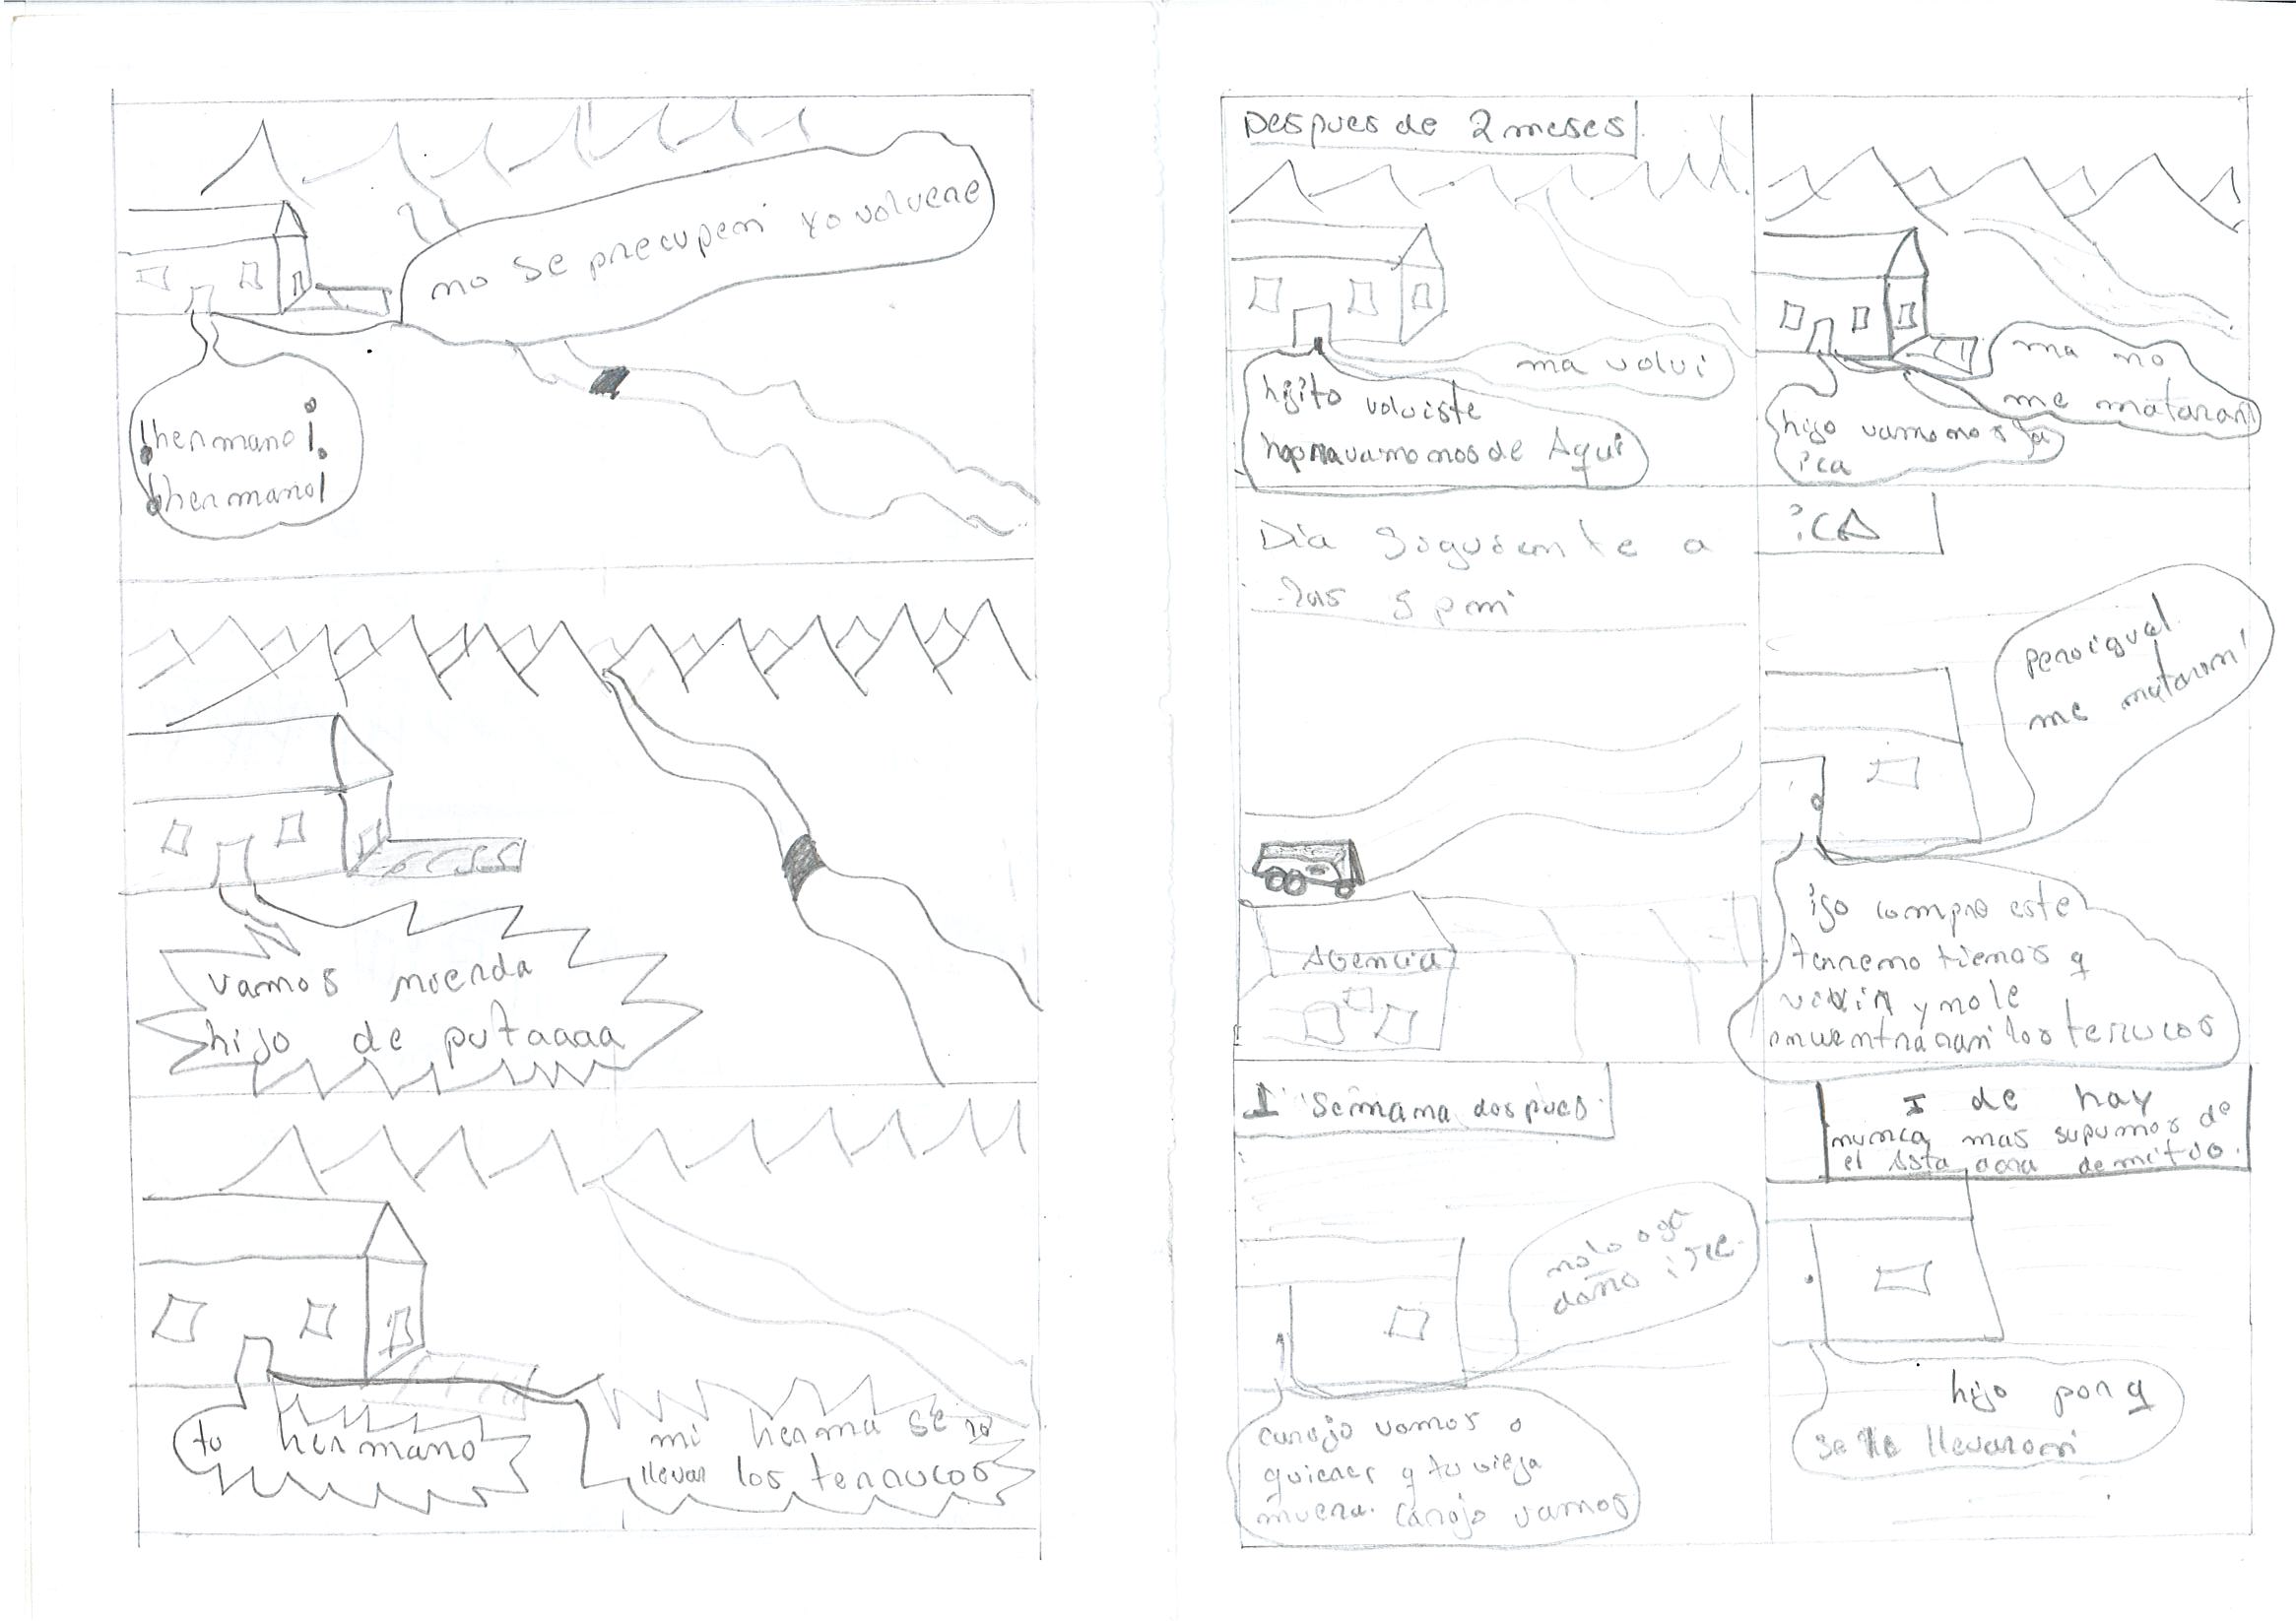 no se precupen yo volvere
¡hermano!
¡hermano!
vamos mierda
hijo de putaaaa
tu hermano
mi herma se lo
llevan los terrucos
Despues de 2 meses
ma volvi
hijito volviste
vamonos de Aqui
ma no
me mataran
hijo vamonos a
ica
Dia siguiente a
las 5 pm
Agencia
ICA
pero igual
me mataran
ijo compre este
terreno tienes q
vivir y no le
encuentraran los terucos
1 semana despues
no lo aga
daño ire
carajo vamos o
quieres q tu vieja
muera. carajo vamos
I de hay
nunca mas supimos de
el
hijo por q
se lo llevaron